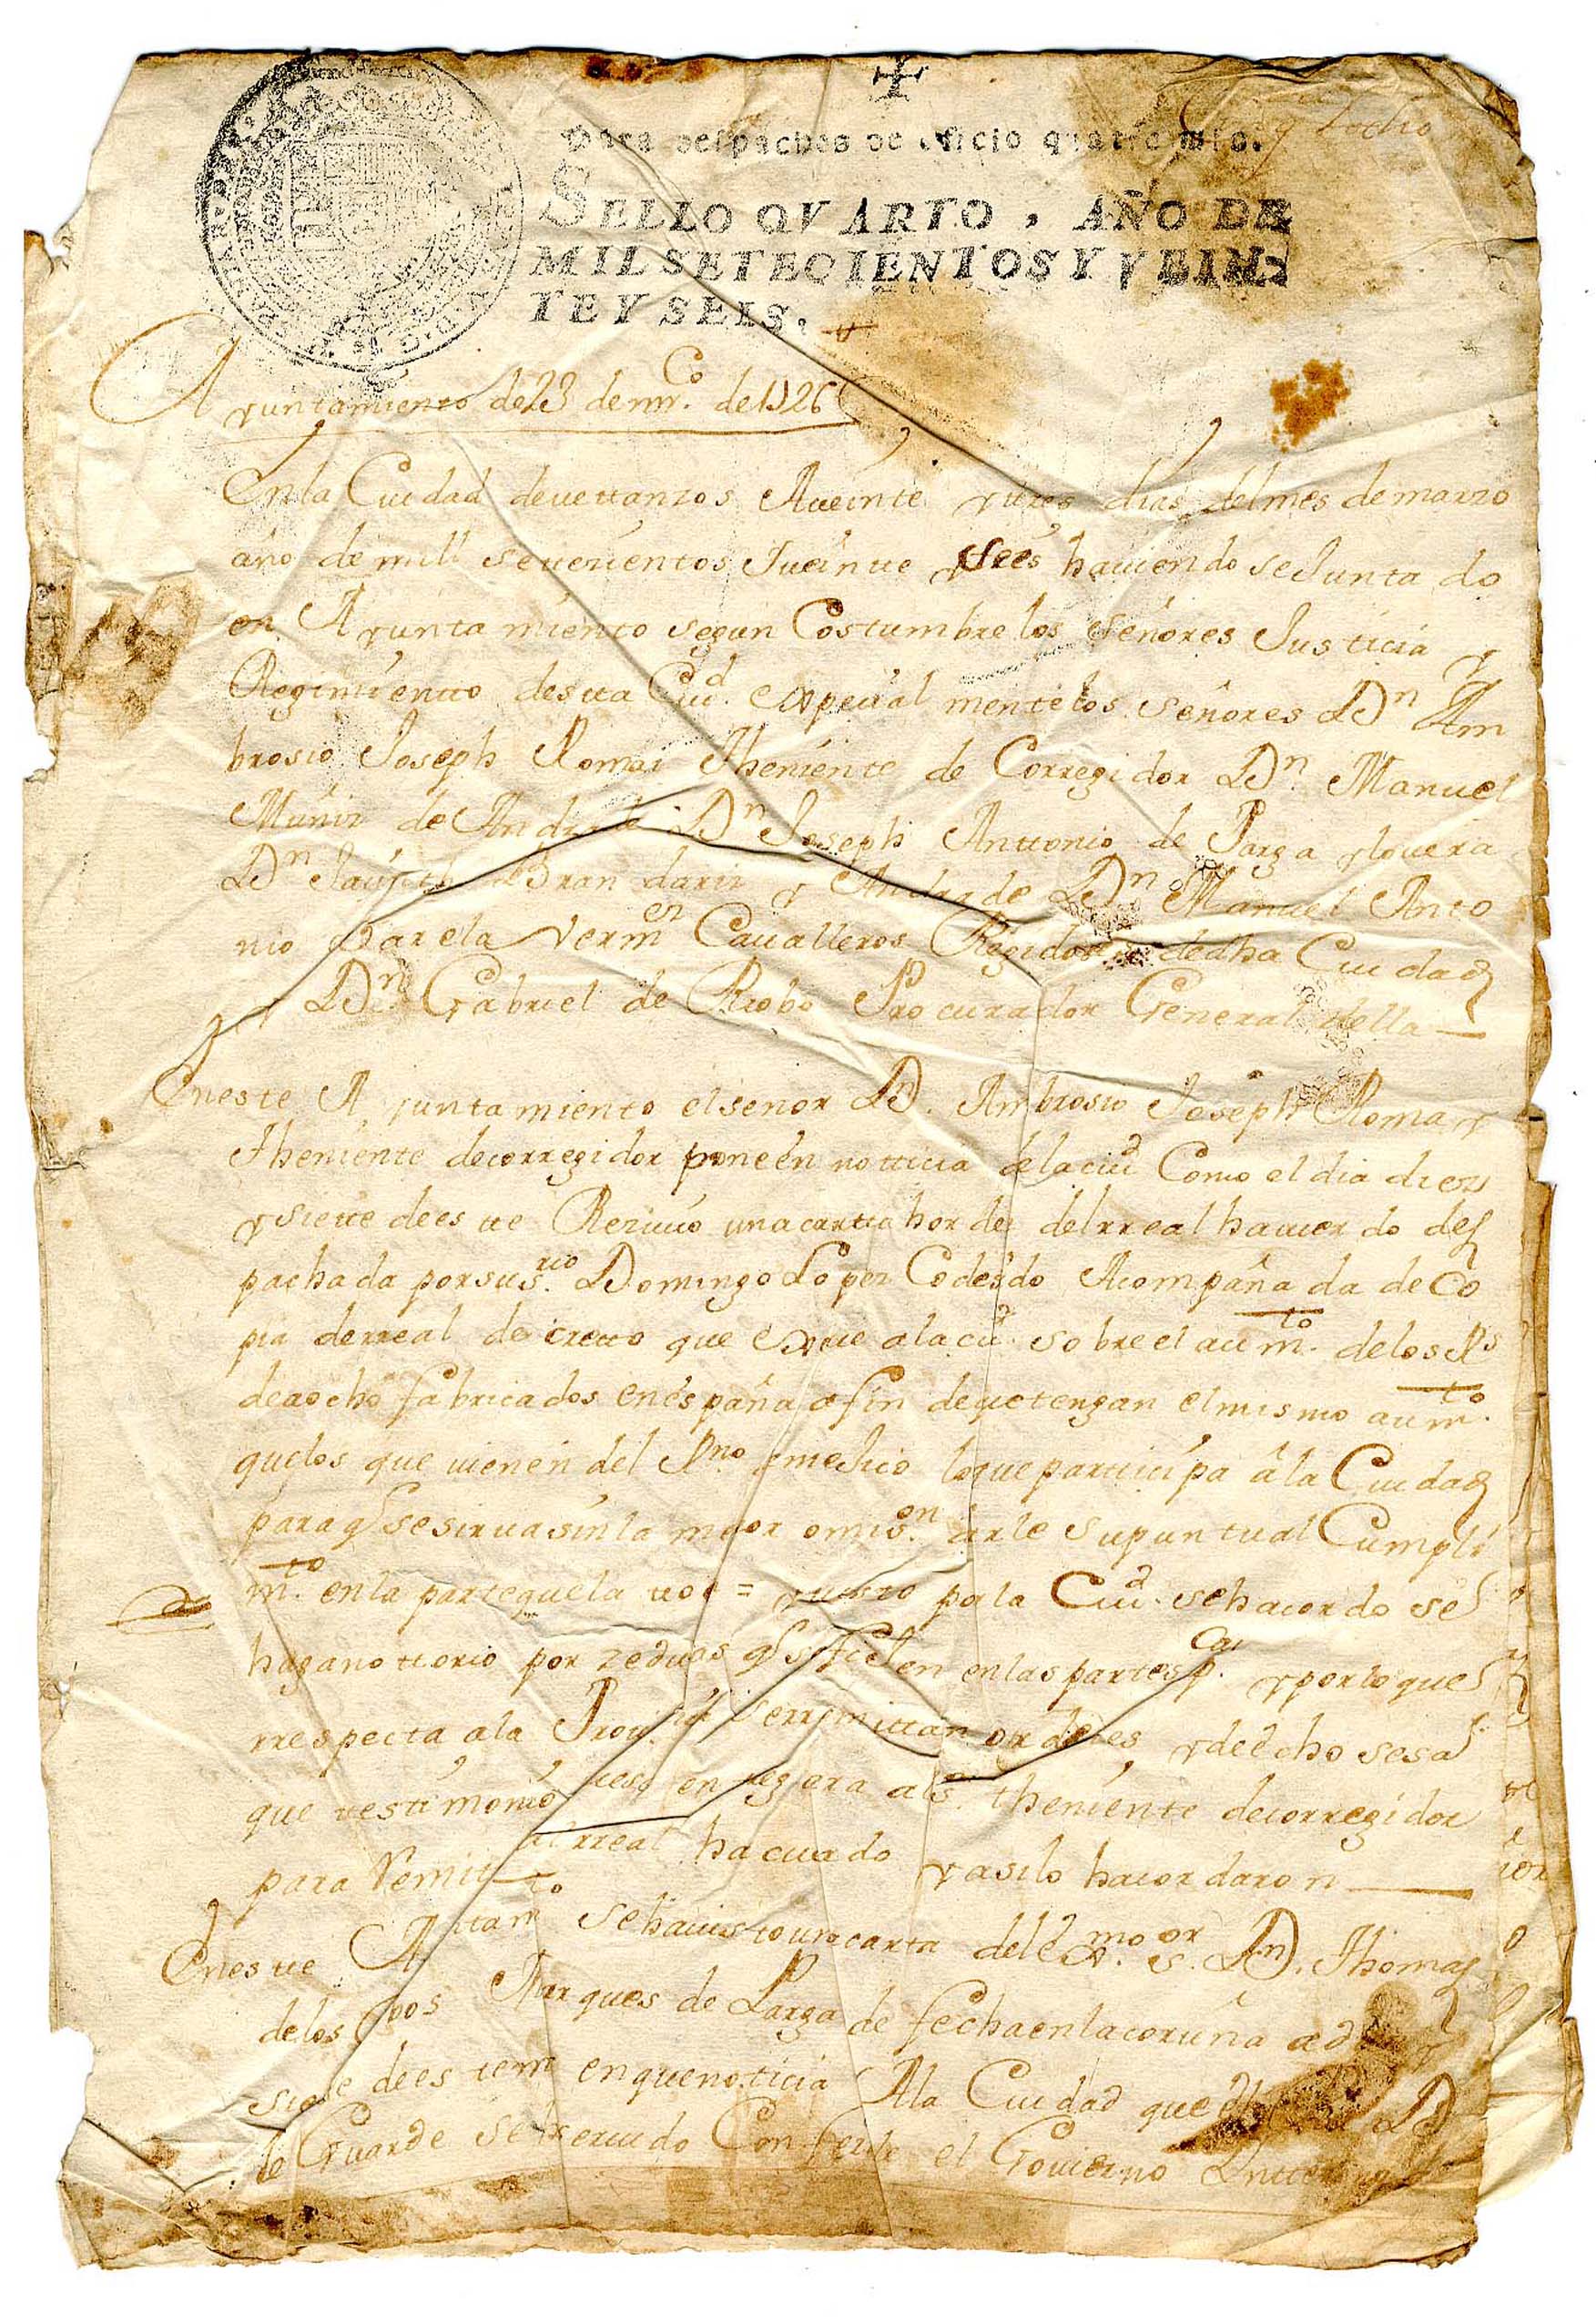 Para despachos de oficio quatro mrs.
SELLO QVARTO, AÑO DE
MIL SETECIENTOS Y VEIN-
TE Y SEIS.
Ayuntamiento de 23 de mrço. de 1726
Enla Ciudad deuettanzos Aueinte ytres dias delmes demarzo
año de mill settecientos Jueinte yseis hauiendo seJunta do
en Ayunta miento segun Costumbre los señores Justicia y
Regimientto destta Ciud. expecial mente los señores Dn Am
brosio Joseph Romai Theniente de Corregidor Dn. Manuel
Muñiz de Andrade Dn Joseph Anttonio de Parga y
Dn Brandariz y Andrade Dn Manuel Anto
nio Varela Vermez Caualleros Regidores dedha Ciudad
y Dn. Gabriel de Riobo Procurador General della
Eneste Ayuntamiento elsenor Dn. Ambrosio Joseph Romay
Theniente decorregidor poneen notticia delaciud Como el dia diez
ysiette deeste Reziuio unacartta horden delrreal hacuerdo des
pachada porsu srio. Domingo Lopez Codesdo Acompaña da de Co
pia derreal decretto que exiue alaciud. sobreel aumto. delos Rs
deaocho fabricados enespaña afin dequetengan elmismo aumto.
quelos que uienen del Rno. meJico loqueparticipa âla Ciudad
paraq sesirua sinla maior omison. darle supuntual Cumpli
mto. enla partequela toca = yuisto porla Ciud. sehacordo se
haganottorio por zedulas q sefixen enlaspartes pcas. yporloque
rrespecta ala Prouincia serremittan ordenes ydeecho sesa
que testimonio alsr. theniente decorregidor
para Remitir alrreal hacuerdo yasilo hacordaron
Eneste Aiuntamto sehauisto unacarta delexmo. sor. Dn. Thomas
delos Marques de Parga de fechaenlacoruña adiez y
siete deestem enquenoticia Ala Ciudad que D
le Guarde seha seruido el Gouierno